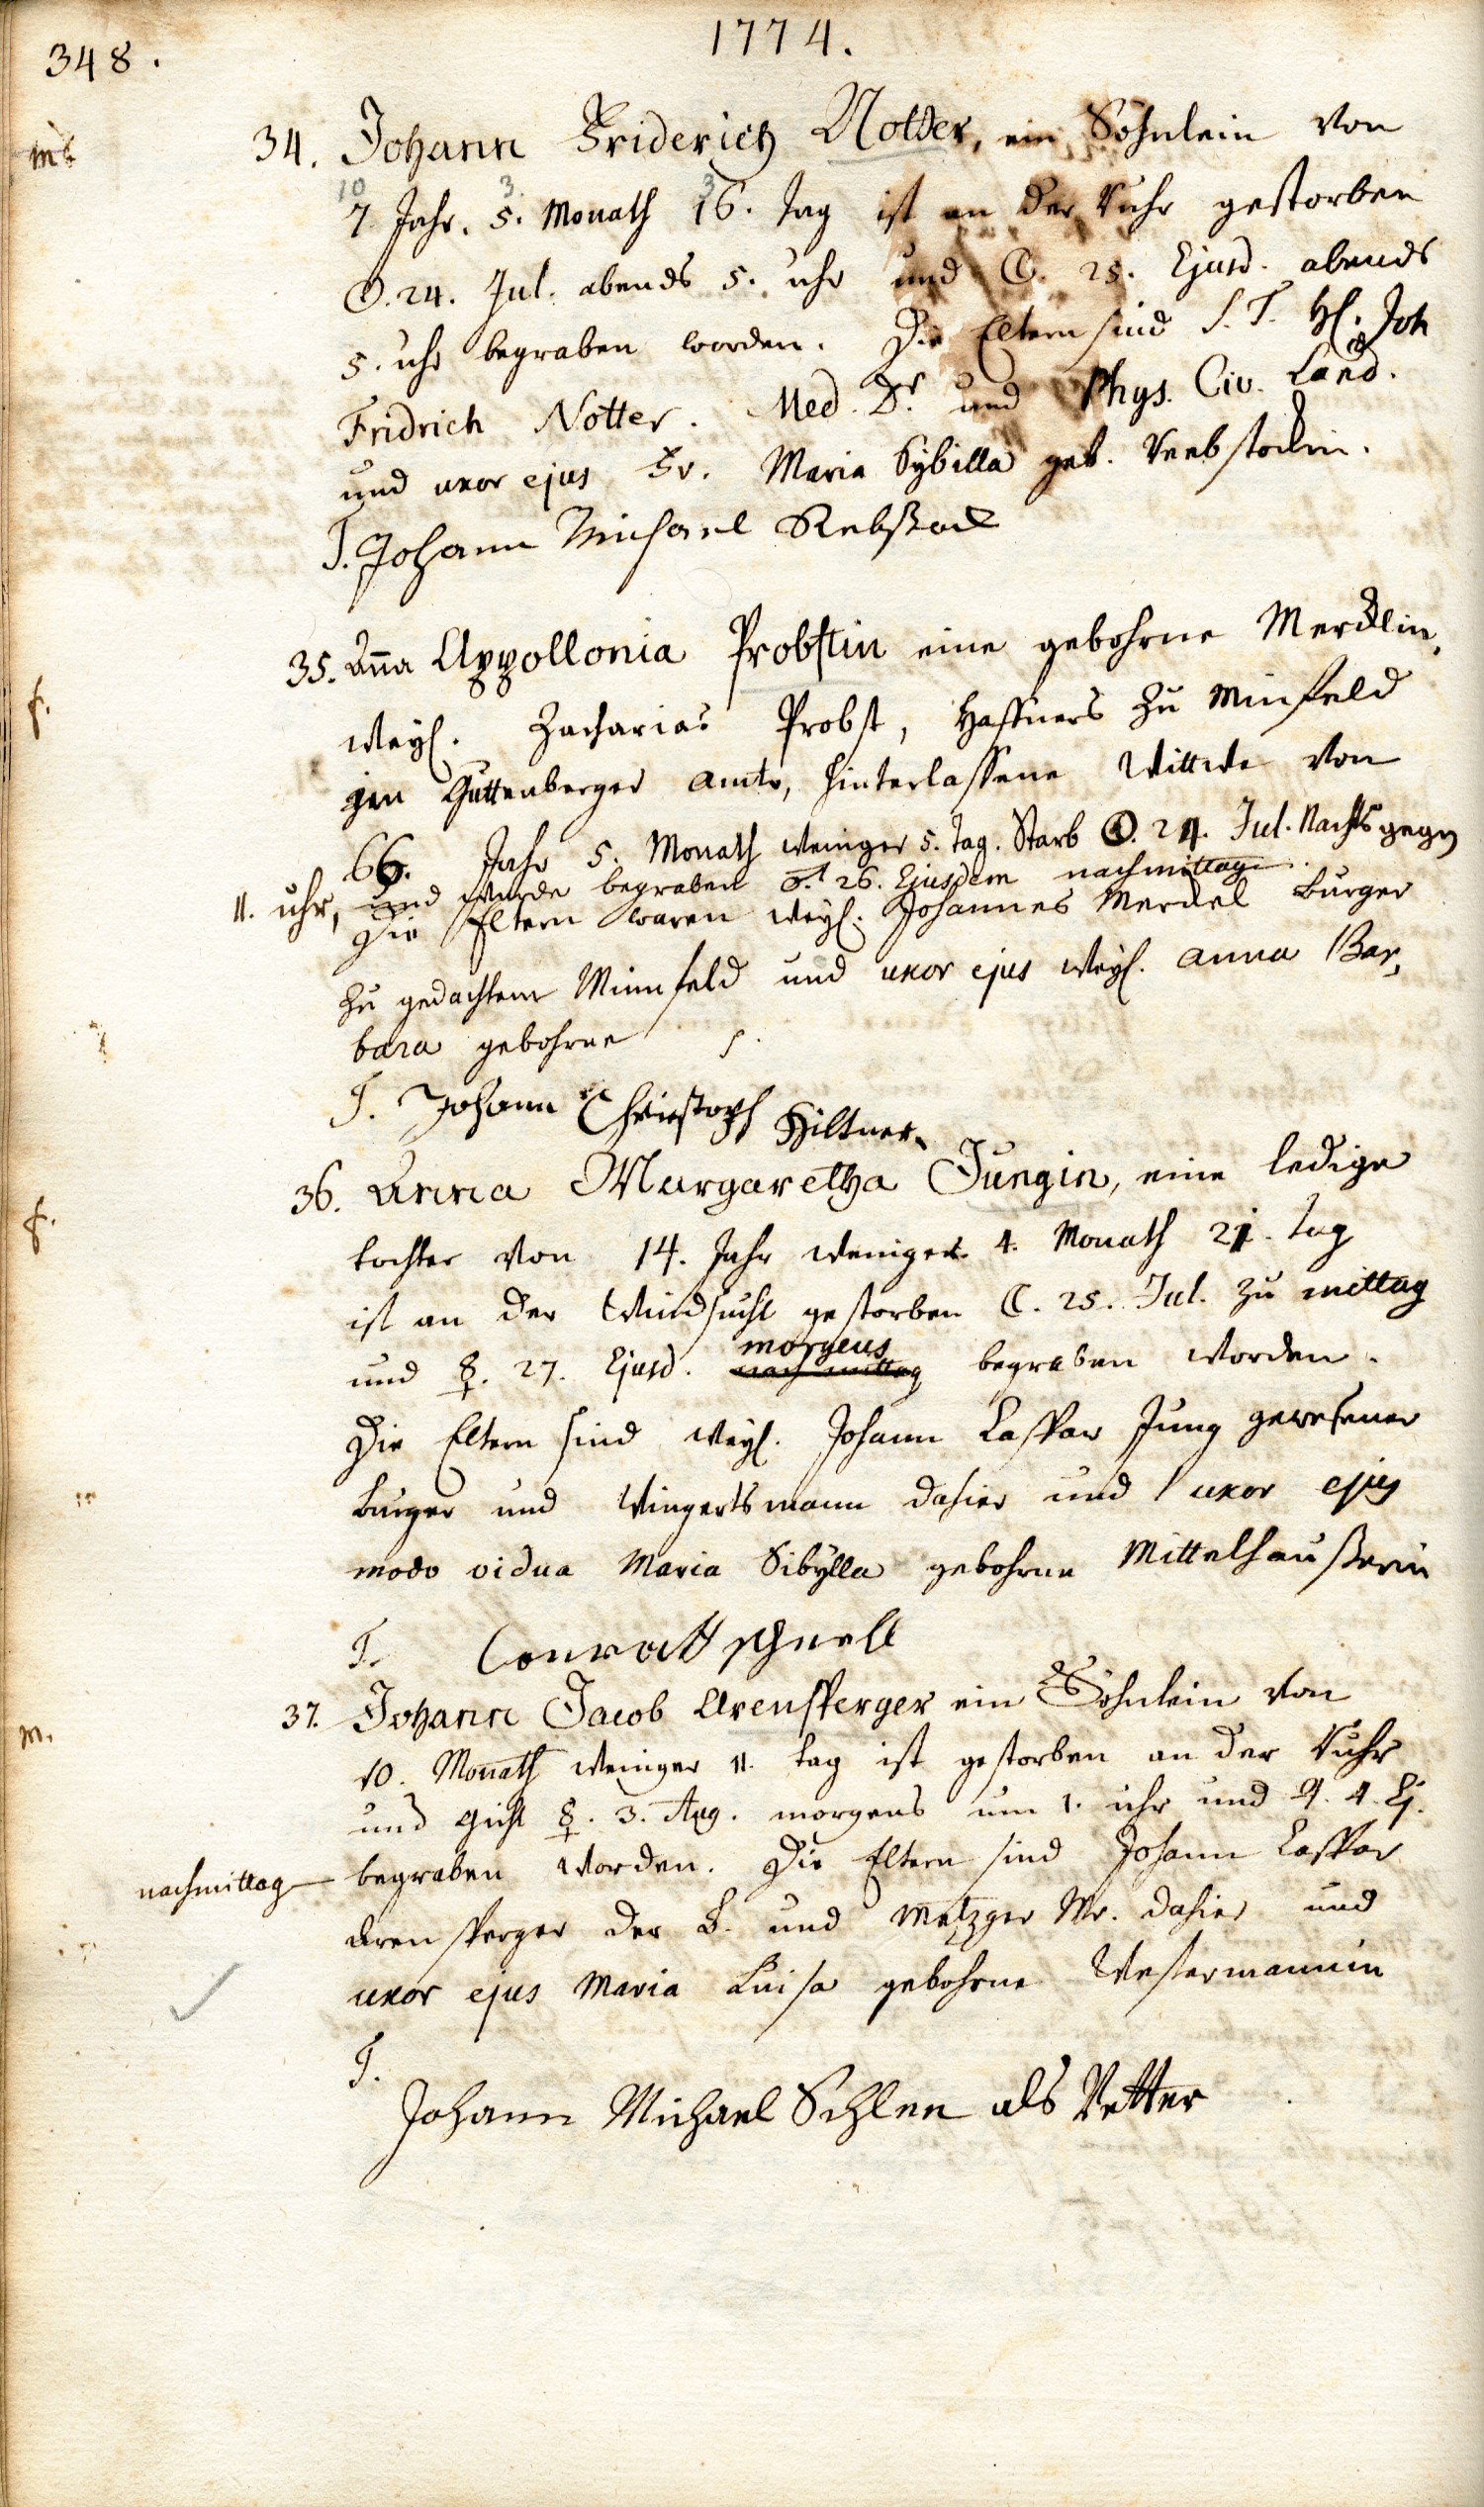 348.
1774.
m.
34. Johann Friderich Notter, ein Söhnlein von
10 3. 3
7 Jahr. 5. Monath 16. tag ist an der Ruhr gestorben
☉. 24. Jul. abends 5. uhr und ☾. 25. Ejusd. abends
5. uhr begraben worden. Die Eltern sind S. T. H. Joh
Fridrich Notter. Med. Dr. und Phys. Civ. Land.
und uxor ejus Fr. Maria Sybilla geb. Reebstockin.
T. Johann Michael Rebstock
f.
35. Anna Appollonia Probstin eine gebohrne Mercklin,
weyl. Zacharias Probst, Haffners zu Minfeld
gen Guttenberger amts, hinterlassene Wittwe von
66. Jahr 5. Monath weniger 5. tag. Starb ☉. 24. Jul. Nachts gegen
11. uhr, und wurde begraben ♂. 26. Ejusdem nachmittag.
Die Eltern waren weyl. Johannes Merckel burger
zu gedachtem Minnfeld und uxor ejus weyl. anna Bar,
bara gebohrne
T. Johann Christoph Hiltner
f.
36. Anna Margaretha Jungin, eine ledige
tochter von 14. Jahr weniger 4. Monath 21. tag
ist an der Windsucht gestorben ☾. 25. Jul. zu mittag
und ☿. 27. Ejusd. nachmittag morgens begraben worden.
Die Eltern sind weyl. Johann Caspar Jung gewesener
burger und Wingertsmann dahier und uxor ejus
modo vidua Maria Sibylla gebohrne Mittelhaußerin
T. Conratt schnell
m.
37. Johann Jacob Arensperger ein Söhnlein von
10. Monath weniger 11. tag ist gestorben an der Ruhr
und Gicht ☿. 3. Aug. morgens um 1. uhr und ♃. 4. Ej.
nachmittag begraben worden. Die Eltern sind Johann Caspar
Arensperger der B. und Metzger Mr. dahier und
uxor ejus Maria Luisa gebohrne Westermannin
T.
Johann Michael Schlee als Vetter